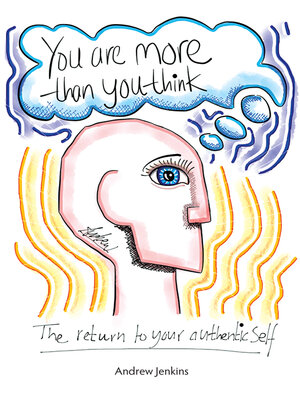 You are more
than you think
Andrew
The return to your authentic self
Andrew Jenkins